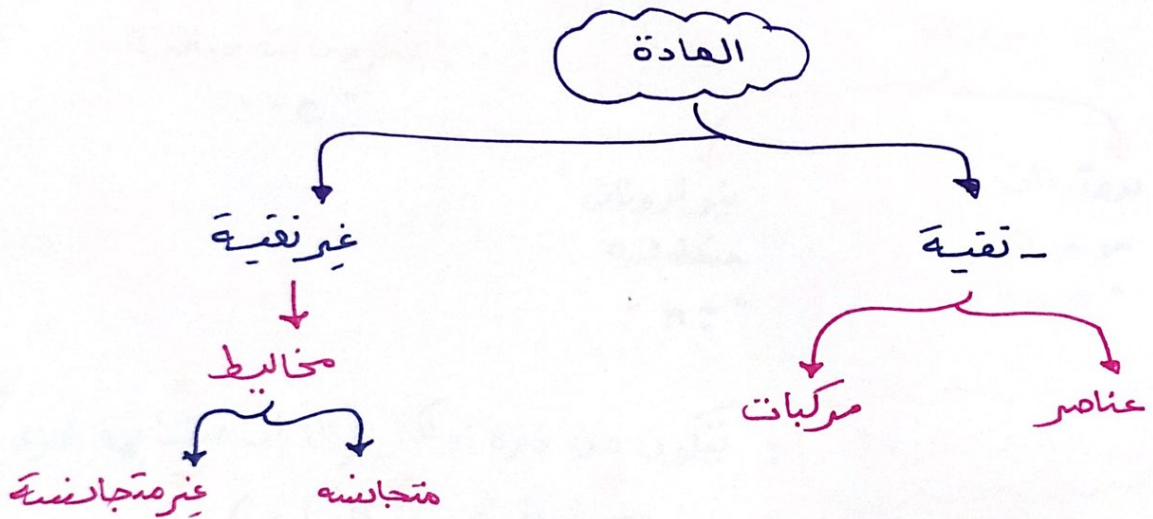 المادة
- نقية
غير نقية
عناصر
مركبات
مخاليط
متجانسه
غير متجانسة